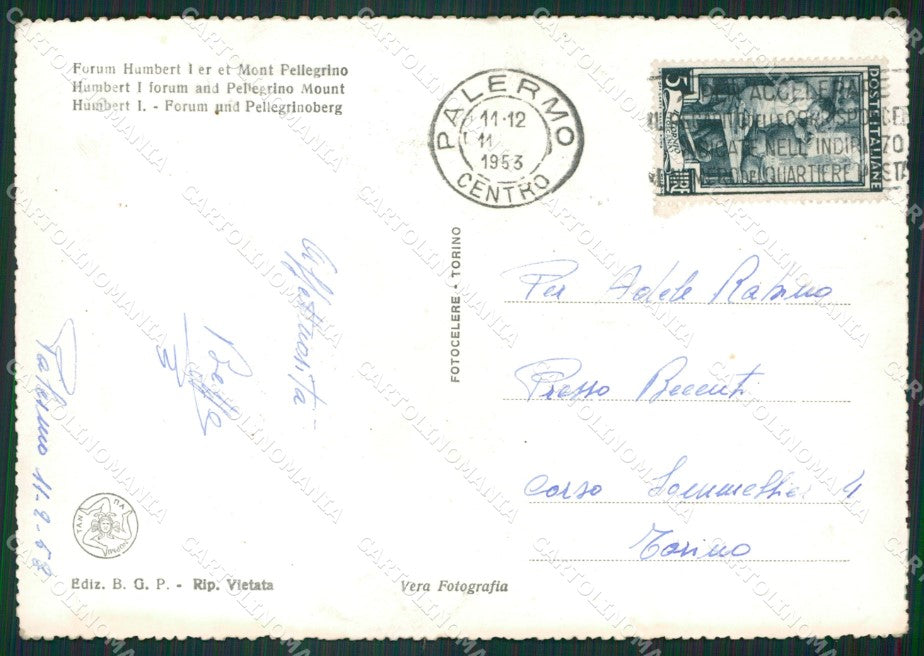 Forum Humbert I er et Mont Pellegrino
Humbert I forum and Pellegrino Mount
Humbert I. - Forum und Pellegrinoberg
PALERMO
11-12
11
1953
CENTRO
5
POSTE ITALIANE
PER ACCELERARE
CORRISPONDE
NELL'INDIRIZZO
QUARTIERE POSTA
Affettuosità
Palermo 11-9-53
FOTOCELERE - TORINO
Per Adele Rasino
Presso Becenti
Corso Sommeiller 4
Torino
Ediz. B. G. P. - Rip. Vietata
Vera Fotografia
CARTOLINOMANIA